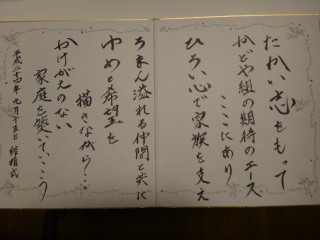 たかい志をもって
かどや組の期待のエース
ここにあり
ひろい心で家族を支え
ろまん溢れる仲間と共に
ゆめと希望を
描きながら…
かけがえのない
家庭を築いていこう
平成二十四年九月十五日 結婚式